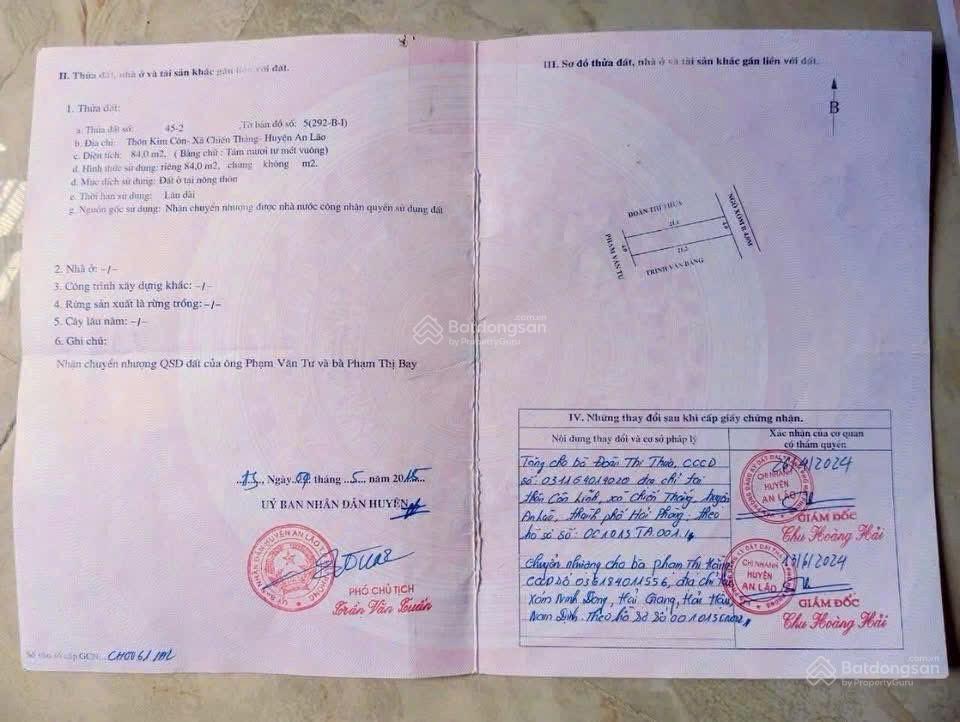 II. Thửa đất, nhà ở và tài sản khác gắn liền với đất.
1. Thửa đất:
a. Thửa đất số: 45-2 ,Tờ bản đồ số: 5(292-B-I)
b. Địa chỉ: Thôn Kim Côn- Xã Chiến Thắng- Huyện An Lão
c. Diện tích: 84,0 m2, ( Bằng chữ : Tám mươi tư mét vuông)
d. Hình thức sử dụng: riêng 84,0 m2, chung không m2.
đ. Mục đích sử dụng: Đất ở tại nông thôn
e. Thời hạn sử dụng: Lâu dài
g. Nguồn gốc sử dụng: Nhận chuyển nhượng được nhà nước công nhận quyền sử dụng đất
2. Nhà ở: -/-
3. Công trình xây dựng khác: -/-
4. Rừng sản xuất là rừng trồng: -/-
5. Cây lâu năm: -/-
6. Ghi chú:
Nhận chuyển nhượng QSD đất của ông Phạm Văn Tư và bà Phạm Thị Bay
Ngày tháng 5 năm 2015
UỶ BAN NHÂN DÂN HUYỆN
PHÓ CHỦ TỊCH
Trần Văn Tuấn
Số vào sổ cấp GCN:
III. Sơ đồ thửa đất, nhà ở và tài sản khác gắn liền với đất.
B
DOÃN THỊ THỪA
NGÕ XÓM
21.2
PHẠM VĂN TƯ
4.0
TRỊNH VĂN BẢNG
Batdongsan.com.vn
by PropertyGuru
IV. Những thay đổi sau khi cấp giấy chứng nhận.
Nội dung thay đổi và cơ sở pháp lý
Xác nhận của cơ quan
có thẩm quyền
Tặng cho bà Doãn Thị Thừa, CCCD
số địa chỉ tại
thôn Côn Lĩnh, xã Chiến Thắng, huyện
An Lão, thành phố Hải Phòng. theo
hồ sơ số:
26/4/2024
CHI NHÁNH
HUYỆN
AN LÃO
GIÁM ĐỐC
Chu Hoàng Hải
Chuyển nhượng cho bà Phạm Thị
CCCD số 036184011556, địa chỉ tại
Xóm Ninh Đông, Hải Giang, Hải Hậu,
Nam Định. Theo hồ sơ số
13/6/2024
CHI NHÁNH
HUYỆN
AN LÃO
GIÁM ĐỐC
Chu Hoàng Hải
Batdongsan.com.vn
by PropertyGuru